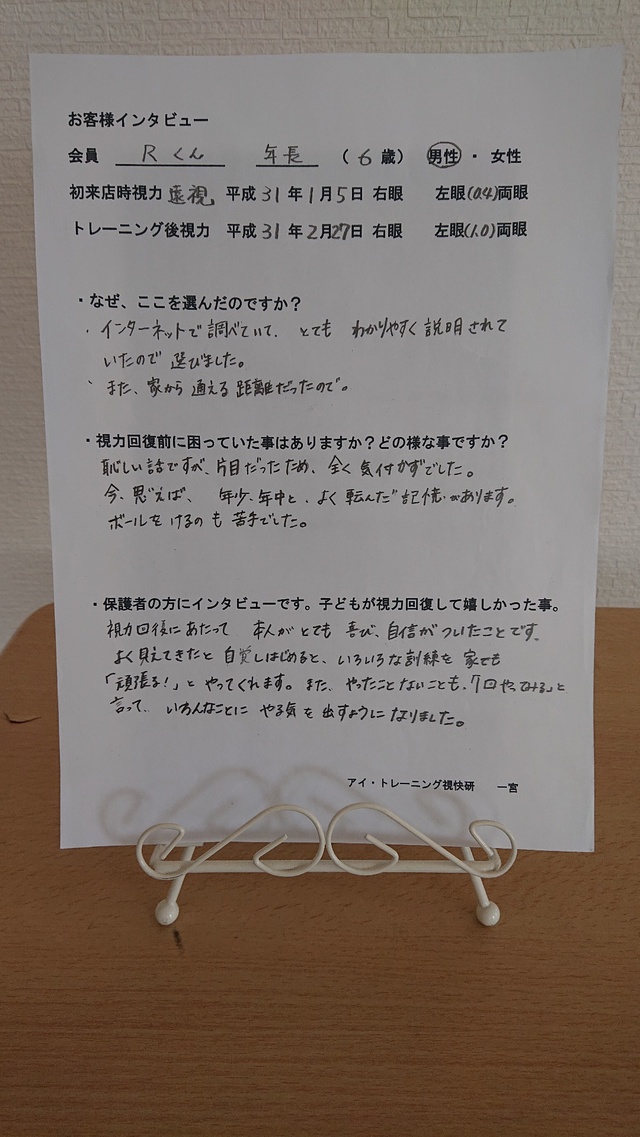 お客様インタビュー
会員 Rくん 年長 (6歳) 男性・女性
初来店時視力 遠視 平成31年1月5日 右眼 左眼(0.4)両眼
トレーニング後視力 平成31年2月27日 右眼 左眼(1.0)両眼
・なぜ、ここを選んだのですか?
・インターネットで調べていて、とても わかりやすく説明されて
いたので 選びました。
、また、家から通える距離だったので。
・視力回復前に困っていた事はありますか?どの様な事ですか?
恥しい話ですが、片目だったため、全く気付かずでした。
今、思えば、年少、年中と、よく転んだ記憶があります。
ボールをけるのも苦手でした。
・保護者の方にインタビューです。子どもが視力回復して嬉しかった事。
視力回復にあたって 本人がとても喜び、自信がついたことです。
よく見えてきたと自覚しはじめると、いろいろな訓練を家でも
「頑張る!」とやってくれます。また、やったことないことも、「1回やってみる」と
言って、いろんなことに やる気を出すようになりました。
アイ・トレーニング視快研 一宮